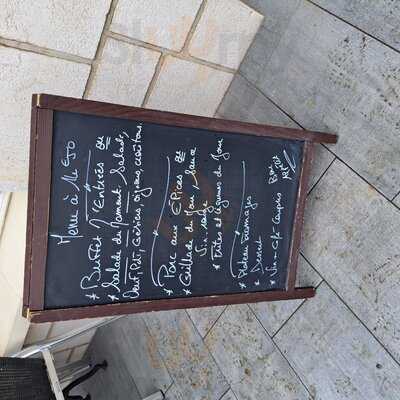 Menu à 14€50
* Buffet d'Entrées ou
* Salade du Moment: Salade,
Oeuf, Pdt, Gésiers, oignons, croûtons
* Porc aux Epices ou
* Grillade du Jour, Sauce
Vin rouge
* Frites et légumes du Jour
* Plateau fromages
* Dessert
* Vin et Café compris
Bon